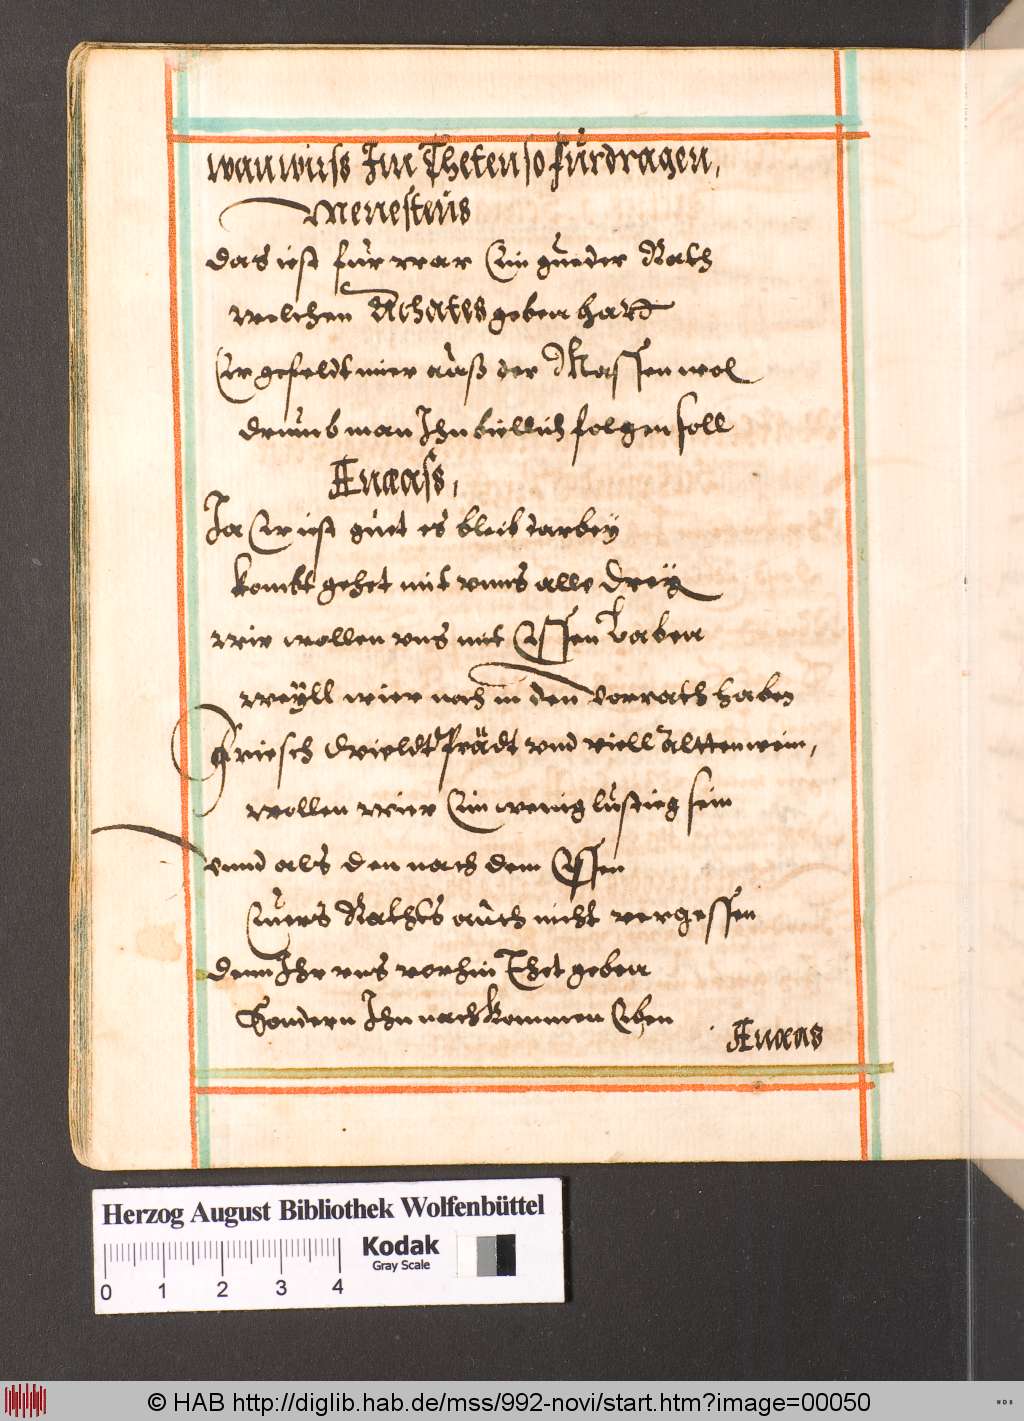 wan wiirs Im Theten so fürdragen,
Menesteüs
das iest für war Ein gueder Rath
welchen Achates geben hart
Er gefeldt mier auß der Massen wol
drumb man Ihn biellich folgen soll
Æneass,
Ja Er iest guet es bleib darbey
kombt gehet mit vnns alle drey
wir wollen vns mit Essen laben
weyll wier noch in den vorrath haben
Griesch Wieldt Prädt vnd viell altten wein,
wollen wier Ein wenig lustieg sein
vnnd als den nach dem Essen
Euers Rathts auch nicht vergessen
denn Ihr vns vorhin Thet geben
Sondern Ihn nach kommen Eben
Æneas
Herzog August Bibliothek Wolfenbüttel
Kodak
Gray Scale
0 1 2 3 4
© HAB http://diglib.hab.de/mss/992-novi/start.htm?image=00050